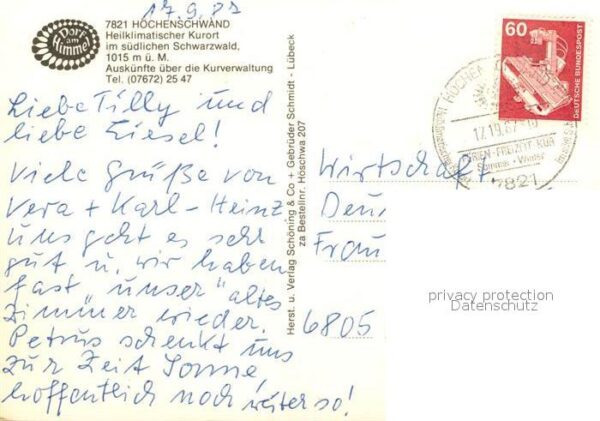 17.9.87
Dorf am Himmel
7821 HÖCHENSCHWAND
Heilklimatischer Kurort
im südlichen Schwarzwald,
1015 m ü. M.
Auskünfte über die Kurverwaltung
Tel. (07672) 25 47
Liebe Tilly und
liebe Liesel!
Viele Grüße von
Vera + Karl-Heinz
Uns geht es sehr
gut u. wir haben
fast unser "altes
Zimmer wieder.
Petrus schenkt uns
zur Zeit Sonne,
hoffentlich noch weiter so!
Herst. u. Verlag Schöning & Co + Gebrüder Schmidt - Lübeck
za Bestellnr. Höschwa 207
60
DEUTSCHE BUNDESPOST
FERIEN-FREIZEIT-KUR
Sommer - Winter
7821
Wirtschaft
Deu
Frau
6805
privacy protection
Datenschutz